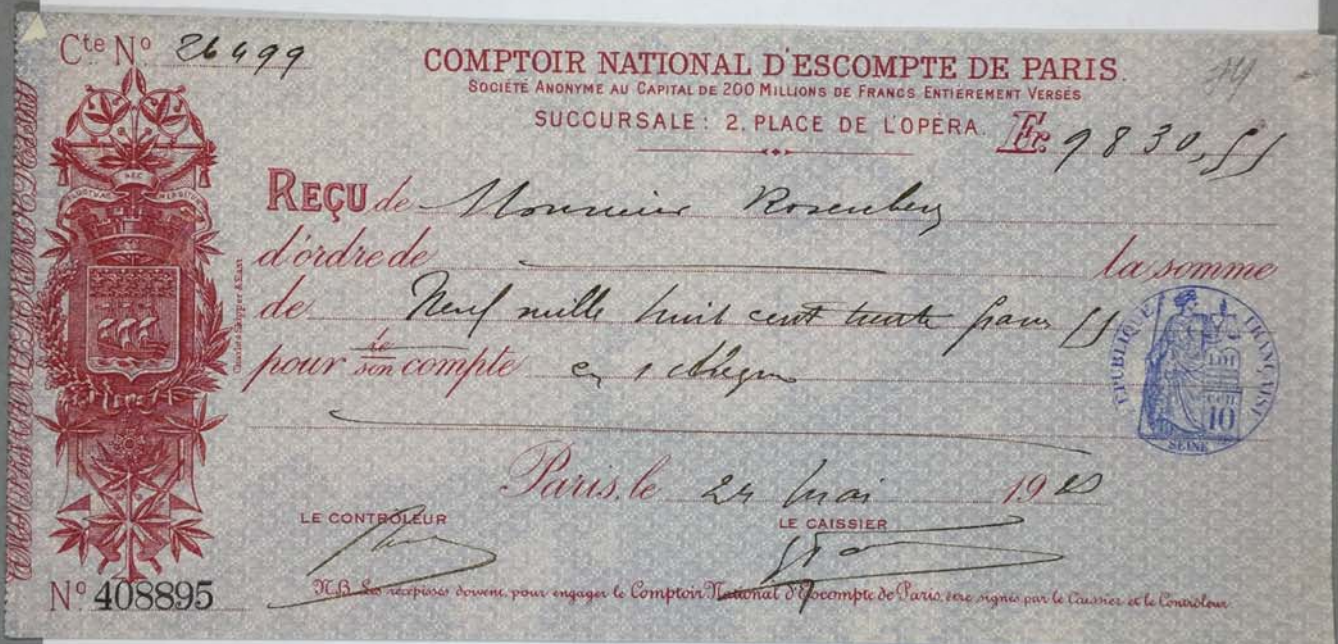 Cte No 26499
COMPTOIR NATIONAL D'ESCOMPTE DE PARIS.
SOCIÉTÉ ANONYME AU CAPITAL DE 200 MILLIONS DE FRANCS ENTIÈREMENT VERSÉS
SUCCURSALE: 2, PLACE DE L'OPÉRA.
Fr. 9830,55
REÇU de Monsieur Rosenberg
d'ordre de la somme
de Neuf mille huit cent trente francs 55
pour son compte en 1 chèque
FLUCTUAT NEC MERGITUR
RÉPUBLIQUE FRANÇAISE
LOI
10
SEINE
Paris, le 24 Mai 19
LE CONTRÔLEUR LE CAISSIER
No 408895
N.B. Les récépissés doivent, pour engager le Comptoir National d'Escompte de Paris, être signés par le Caissier et le Contrôleur.